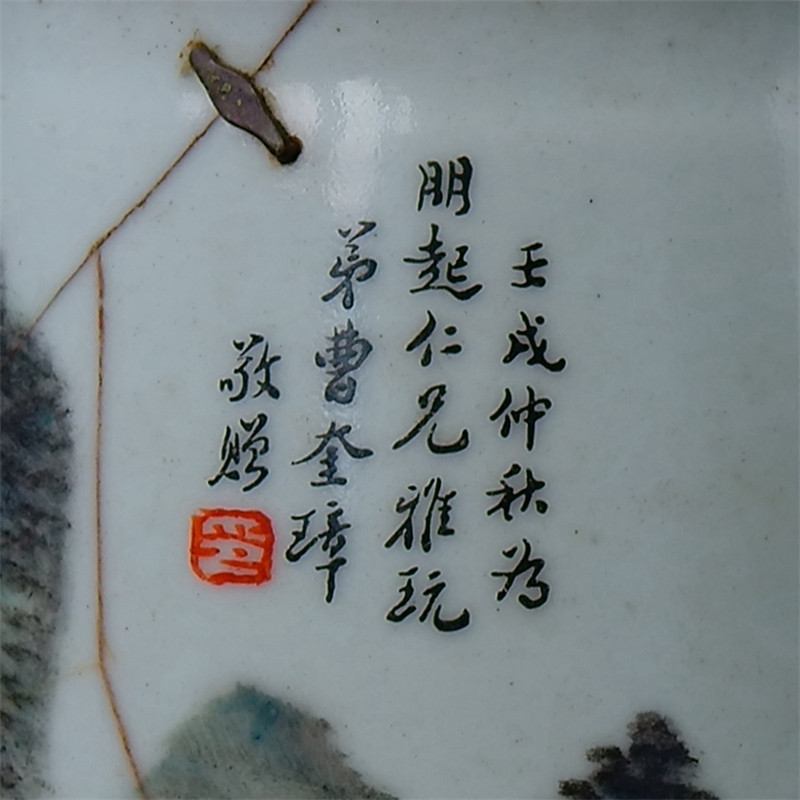 壬戌仲秋为
朋起仁兄雅玩
弟曹奎璋
敬贈